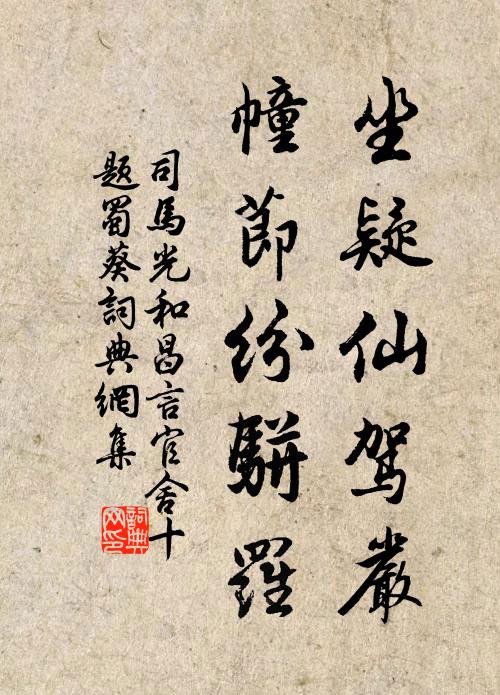 坐疑仙駕嚴
幢節紛駢羅
司馬光和昌言官舍十
題蜀葵詞典網集
詞典網印